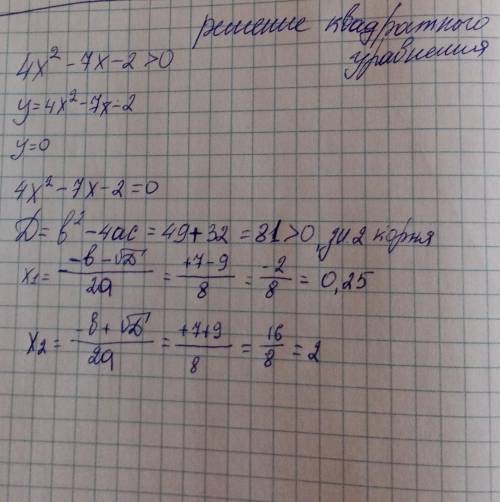 решение квадратного
уравнения
4x² - 7x - 2 > 0
y = 4x² - 7x - 2
y = 0
4x² - 7x - 2 = 0
D = b² - 4ac = 49 + 32 = 81 > 0, 2 корня
x₁ = (-b - √D)/2a = (+7 - 9)/8 = -2/8 = 0,25
x₂ = (-b + √D)/2a = (+7 + 9)/8 = 16/8 = 2